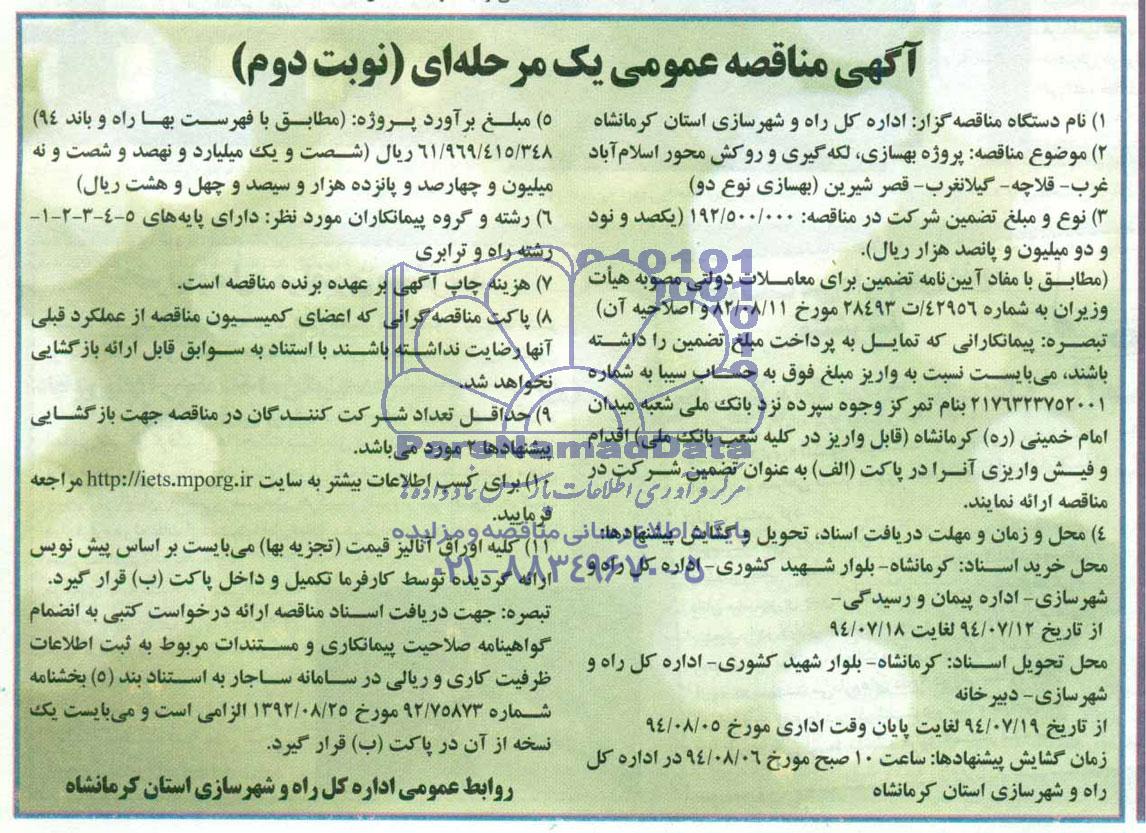 آگهی مناقصه عمومی یک مرحله‌ای (نوبت دوم)
۱) نام دستگاه مناقصه‌گزار: اداره کل راه و شهرسازی استان کرمانشاه
۲) موضوع مناقصه: پروژه بهسازی، لکه‌گیری و روکش محور اسلام‌آباد
غرب- قلاچه- گیلانغرب- قصر شیرین (بهسازی نوع دو)
۳) نوع و مبلغ تضمین شرکت در مناقصه: ۱۹۲/۵۰۰/۰۰۰ (یکصد و نود
و دو میلیون و پانصد هزار ریال).
(مطابق با مفاد آیین‌نامه تضمین برای معاملات دولتی مصوبه هیأت
وزیران به شماره ۴۲۹۵۶/ت ۲۸۴۹۳ مورخ ۸۲/۰۸/۱۱ و اصلاحیه آن)
تبصره: پیمانکارانی که تمایل به پرداخت مبلغ تضمین را داشته
باشند، می‌بایست نسبت به واریز مبلغ فوق به حساب سیبا به شماره
۲۱۷۶۳۲۳۷۵۲۰۰۱ بنام تمرکز وجوه سپرده نزد بانک ملی شعبه میدان
امام خمینی (ره) کرمانشاه (قابل واریز در کلیه شعب بانک ملی) اقدام
و فیش واریزی آنرا در پاکت (الف) به عنوان تضمین شرکت در
مناقصه ارائه نمایند.
۴) محل و زمان و مهلت دریافت اسناد، تحویل و گشایش پیشنهادها:
محل خرید اسناد: کرمانشاه- بلوار شهید کشوری- اداره کل راه و
شهرسازی- اداره پیمان و رسیدگی-
از تاریخ ۹۴/۰۷/۱۲ لغایت ۹۴/۰۷/۱۸
محل تحویل اسناد: کرمانشاه- بلوار شهید کشوری- اداره کل راه و
شهرسازی- دبیرخانه
از تاریخ ۹۴/۰۷/۱۹ لغایت پایان وقت اداری مورخ ۹۴/۰۸/۰۵
زمان گشایش پیشنهادها: ساعت ۱۰ صبح مورخ ۹۴/۰۸/۰۶ در اداره کل
راه و شهرسازی استان کرمانشاه
۵) مبلغ برآورد پروژه: (مطابق با فهرست بها راه و باند ۹۴)
۶۱/۹۶۹/۴۱۵/۳۴۸ ریال (شصت و یک میلیارد و نهصد و شصت و نه
میلیون و چهارصد و پانزده هزار و سیصد و چهل و هشت ریال)
۶) رشته و گروه پیمانکاران مورد نظر: دارای پایه‌های ۵-۴-۳-۲-۱-
رشته راه و ترابری
۷) هزینه چاپ آگهی بر عهده برنده مناقصه است.
۸) پاکت مناقصه‌گرانی که اعضای کمیسیون مناقصه از عملکرد قبلی
آنها رضایت نداشته باشند با استناد به سوابق قابل ارائه بازگشایی
نخواهد شد.
۹) حداقل تعداد شرکت کنندگان در مناقصه جهت بازگشایی
پیشنهادها ۲ مورد می‌باشد.
۱۰) برای کسب اطلاعات بیشتر به سایت http://iets.mporg.ir مراجعه
فرمایید.
۱۱) کلیه اوراق آنالیز قیمت (تجزیه بها) می‌بایست بر اساس پیش نویس
ارائه گردیده توسط کارفرما تکمیل و داخل پاکت (ب) قرار گیرد.
تبصره: جهت دریافت اسناد مناقصه ارائه درخواست کتبی به انضمام
گواهینامه صلاحیت پیمانکاری و مستندات مربوط به ثبت اطلاعات
ظرفیت کاری و ریالی در سامانه ساجار به استناد بند (۵) بخشنامه
شماره ۹۲/۷۵۸۷۳ مورخ ۱۳۹۲/۰۸/۲۵ الزامی است و می‌بایست یک
نسخه از آن در پاکت (ب) قرار گیرد.
روابط عمومی اداره کل راه و شهرسازی استان کرمانشاه
ParsNamadData
پایگاه اطلاع رسانی مناقصه و مزایده
۰۲۱-۸۸۳۴۹۶۷۰-۵